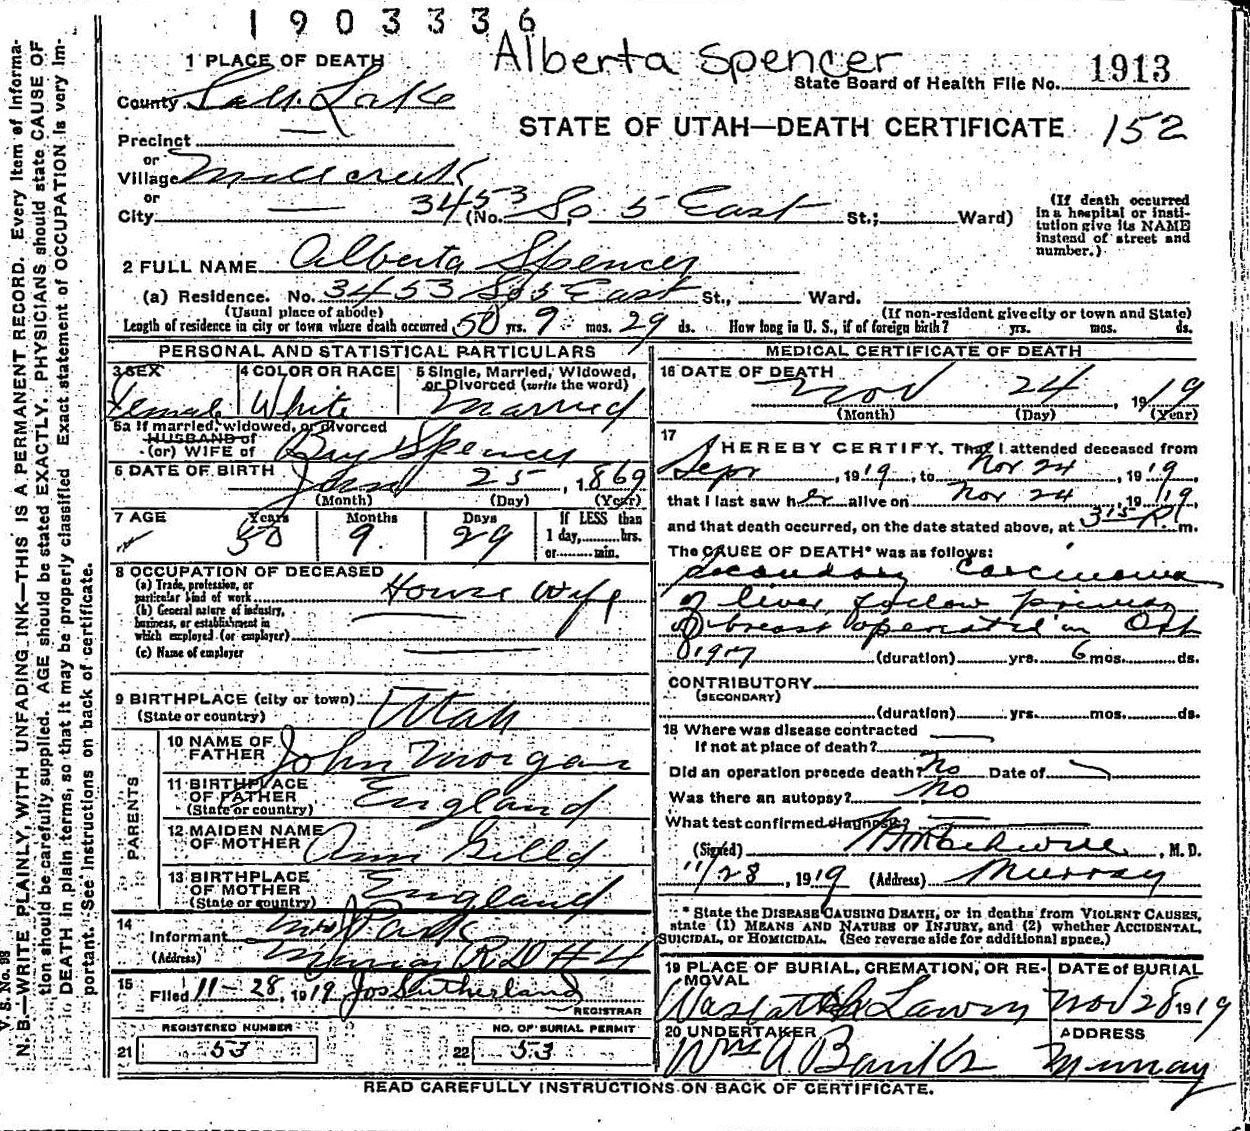 1903336
Alberta Spencer
1 PLACE OF DEATH
State Board of Health File No. 1913
County Salt Lake
STATE OF UTAH—DEATH CERTIFICATE 152
Precinct —
or
Village Millcreek
or
City — (No. 3453 So 5 East St.; Ward)
(If death occurred in a hospital or insti-
tution give its NAME
instead of street and
number.)
2 FULL NAME Alberta Spencer
(a) Residence. No. 3453 So 5 East St., Ward.
(Usual place of abode)
(If non-resident give city or town and State)
Length of residence in city or town where death occurred 50 yrs. 9 mos. 29 ds. How long in U. S., if of foreign birth? yrs. mos. ds.
PERSONAL AND STATISTICAL PARTICULARS
3 SEX Female
4 COLOR OR RACE White
5 Single, Married, Widowed,
or Divorced (write the word)
Married
5a If married, widowed, or divorced
HUSBAND of
(or) WIFE of Bry Spencer
6 DATE OF BIRTH Jan 25, 1869
(Month) (Day) (Year)
7 AGE Years 50 Months 9 Days 29
If LESS than
1 day, hrs.
or min.
8 OCCUPATION OF DECEASED
(a) Trade, profession, or
particular kind of work House Wife
(b) General nature of industry,
business, or establishment in
which employed (or employer) —
(c) Name of employer —
9 BIRTHPLACE (city or town) Utah
(State or country)
PARENTS
10 NAME OF
FATHER John Morgan
11 BIRTHPLACE
OF FATHER England
(State or country)
12 MAIDEN NAME
OF MOTHER Ann
13 BIRTHPLACE
OF MOTHER England
(State or country)
14
Informant Park
(Address) Murray R.D #4
15
Filed 11-28, 1919 Jos Sutherland
REGISTRAR
REGISTERED NUMBER
21 53
NO. OF BURIAL PERMIT
22 53
MEDICAL CERTIFICATE OF DEATH
16 DATE OF DEATH
Nov 24, 1919
(Month) (Day) (Year)
17
I HEREBY CERTIFY, That I attended deceased from
Sept, 1919, to Nov 24, 1919,
that I last saw her alive on Nov 24, 1919
and that death occurred, on the date stated above, at 3 15 P. m.
The CAUSE OF DEATH* was as follows:
Secondary Carcinoma
of liver, follow primary
of breast operated in Oct
1917 (duration) yrs. 6 mos. ds.
CONTRIBUTORY
(SECONDARY)
(duration) yrs. mos. ds.
18 Where was disease contracted
If not at place of death? —
Did an operation precede death? No Date of
Was there an autopsy? No
What test confirmed diagnosis? —
(Signed) , M. D.
11/28, 1919 (Address) Murray
* State the DISEASE CAUSING DEATH, or in deaths from VIOLENT CAUSES,
state (1) MEANS AND NATURE OF INJURY, and (2) whether ACCIDENTAL,
SUICIDAL, or HOMICIDAL. (See reverse side for additional space.)
19 PLACE OF BURIAL, CREMATION, OR RE-
MOVAL
Wasatch Lawn
DATE OF BURIAL
Nov 28 1919
20 UNDERTAKER
Wm A Banks
ADDRESS
Murray
READ CAREFULLY INSTRUCTIONS ON BACK OF CERTIFICATE.
V. S. No. 98
N. B.—WRITE PLAINLY, WITH UNFADING INK—THIS IS A PERMANENT RECORD. Every item of informa-
tion should be carefully supplied. AGE should be stated EXACTLY. PHYSICIANS should state CAUSE OF
DEATH in plain terms, so that it may be properly classified. Exact statement of OCCUPATION is very im-
portant. See instructions on back of certificate.